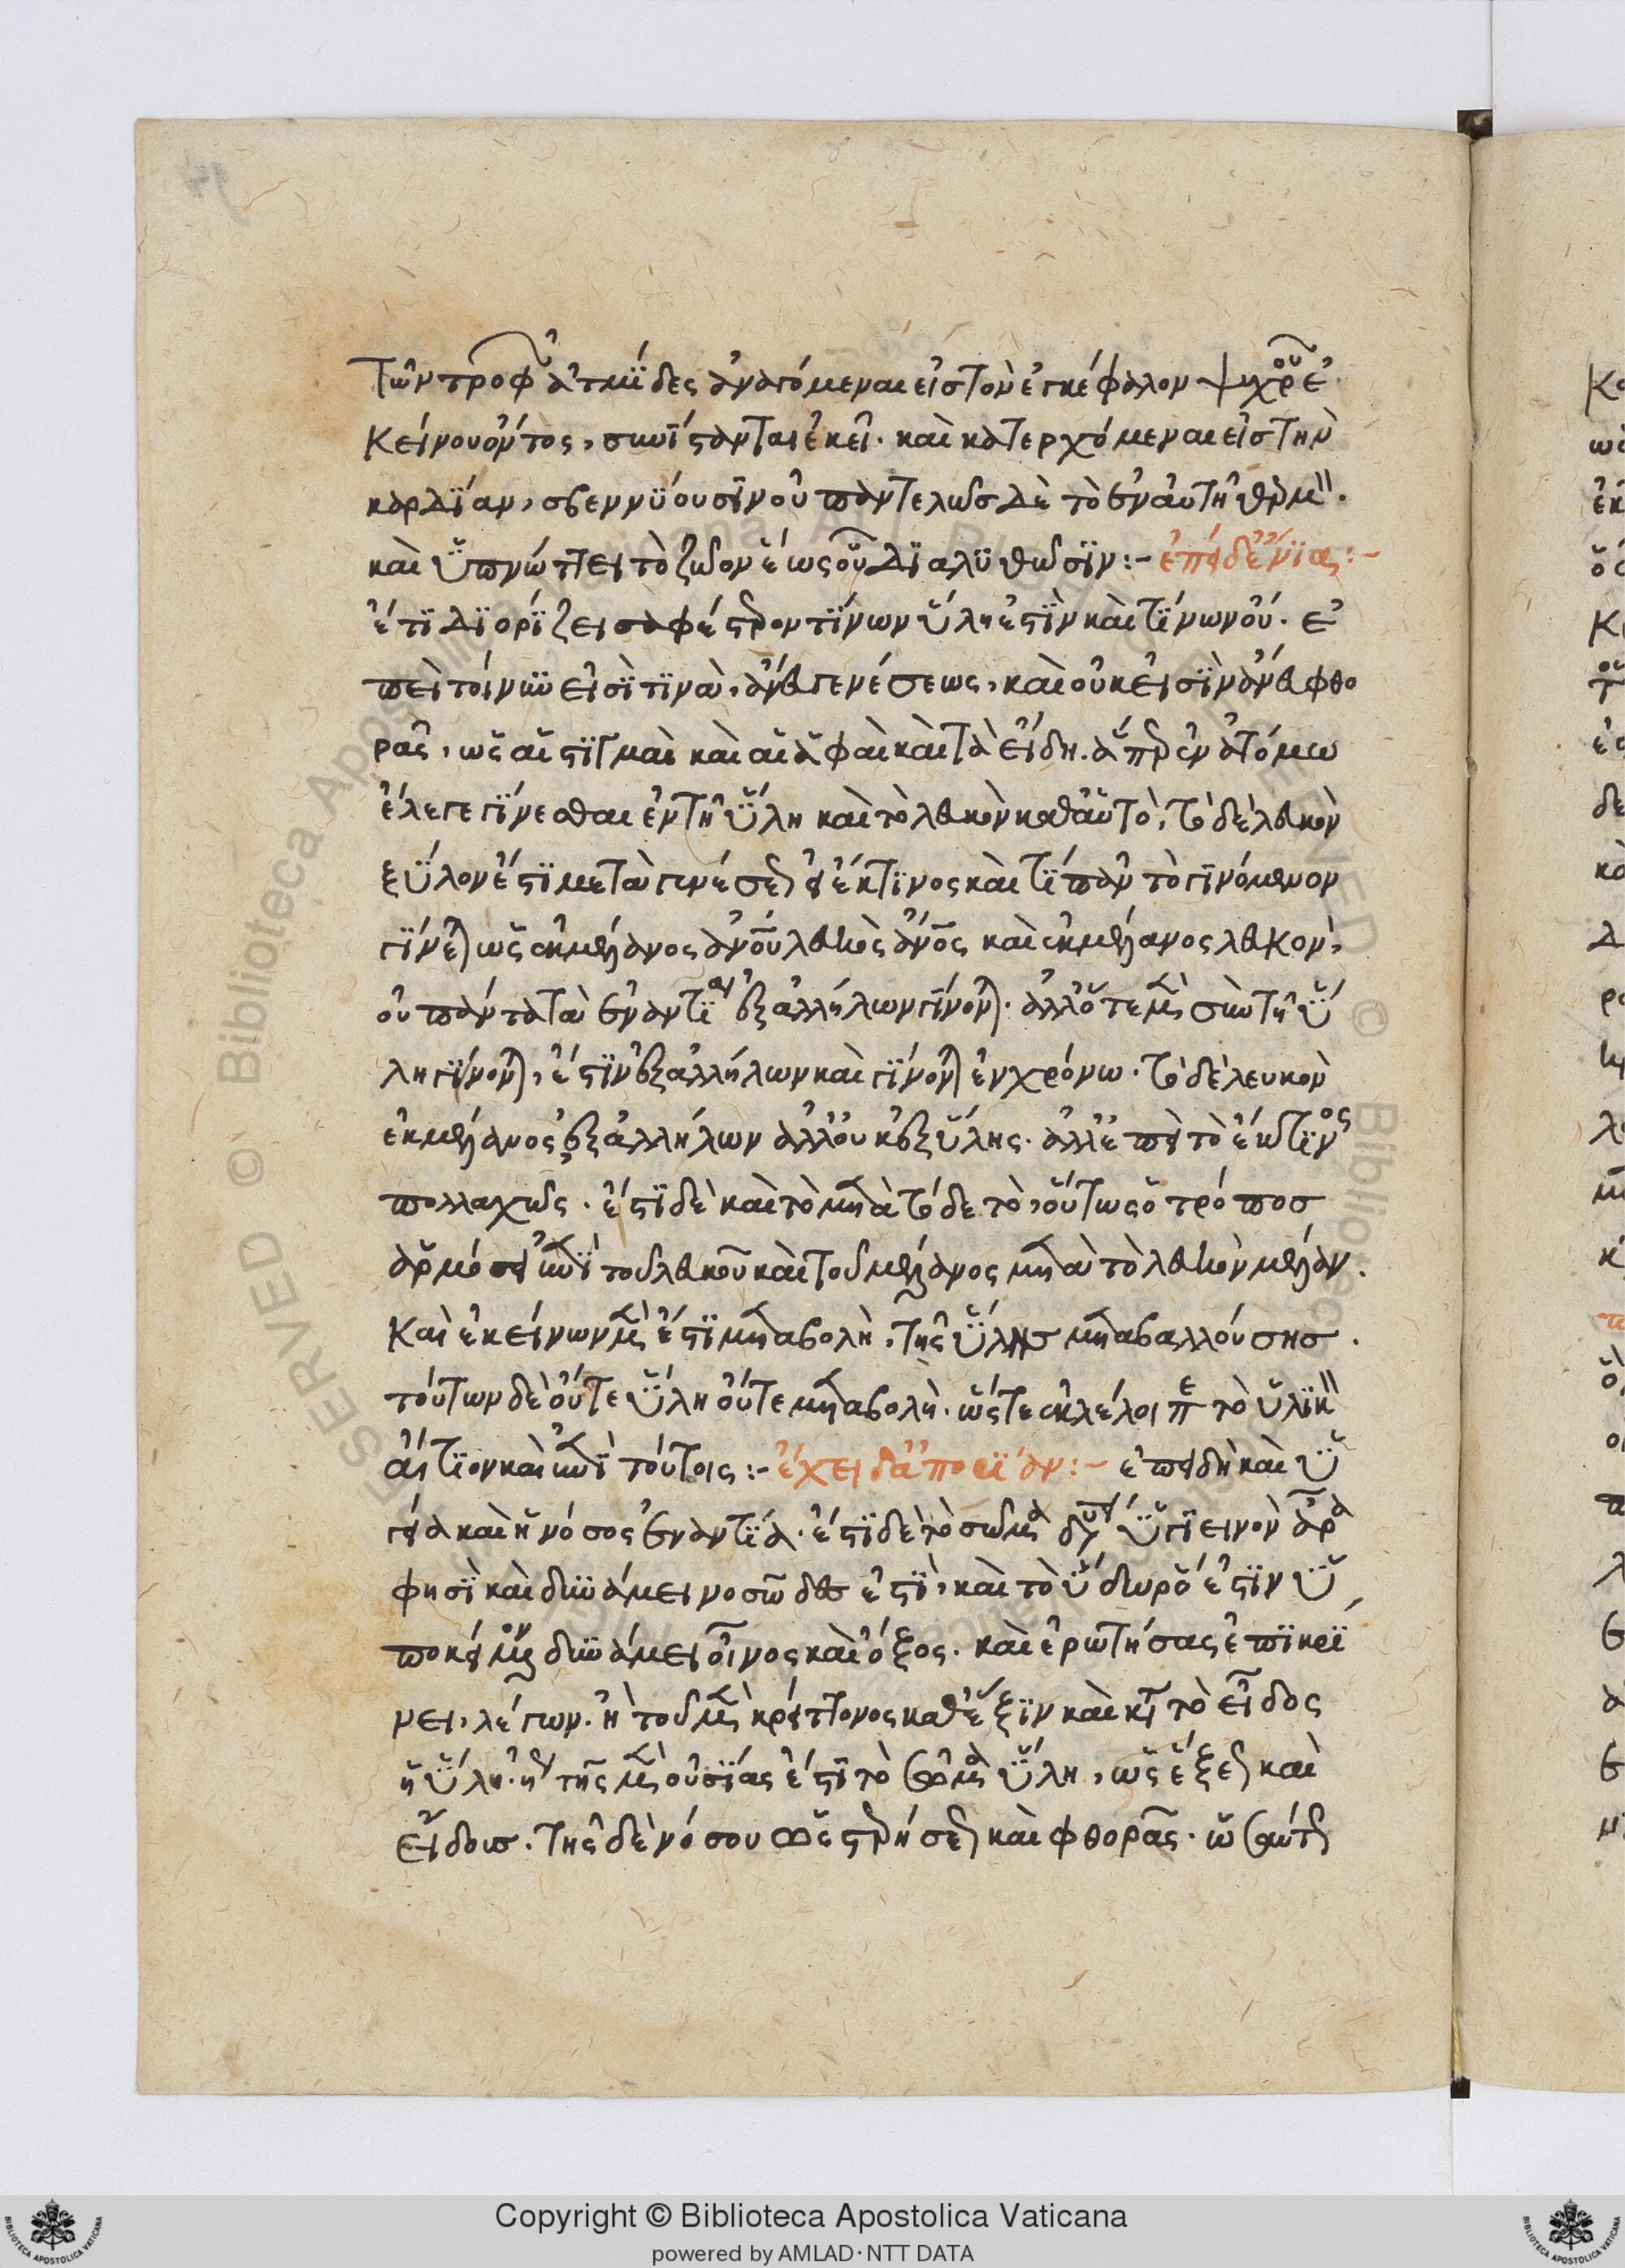 Τῶν τροφῶν ἀτμίδες ἀναγόμεναι εἰς τὸν ἐγκέφαλον ψυχροῦ ἐ
κείνου ὄντος, συνίστανται ἐκεῖ. καὶ κατερχόμεναι εἰς τὴν
καρδίαν, σβεννύουσιν οὐ παντελῶς δὲ τὸ ἐν αὐτῇ θερμ.
καὶ ὑπνώττει τὸ ζῶον ἕως οὗ διαλυθῶσιν:- ἐπεὶ δ' ἔνια:-
ἔτι διορίζει σαφέστερον τίνων ὕλη ἐστὶν καὶ τίνων οὔ. ἐ
πεὶ τοίνυν εἰσί τινα, ἄνευ γενέσεως, καὶ οὐκ εἰσὶν ἄνευ φθο
ρᾶς, ὡς αἱ στιγμαὶ καὶ αἱ ἁφαὶ καὶ τὰ εἴδη. ἅπερ ἐν ἀτόμω
ἔλεγε γίνεσθαι ἐν τῇ ὕλη καὶ τὸ λευκὸν καθ' αὑτό, τὸ δὲ λευκὸν
ξύλον ἐστὶ μετὰ γενέσεως εἰ ἔκ τινος καὶ τὶ πᾶν τὸ γινόμενον
γίνεται ὡς ἐκ μέλανος ἀνου λευκὸς ἄνος καὶ ἐκ μέλανος λευκόν,
οὐ πάντα τὰ ἐναντία ἐξ ἀλλήλων γίνονται. ἀλλ' ὅτε μὲν σὺν τῇ ὕ
λη γίνονται, ἔστιν ἐξ ἀλλήλων καὶ γίνονται ἐν χρόνω. τὸ δὲ λευκὸν
ἐκ μέλανος ἐξ ἀλλήλων ἀλλ' οὐκ ἐξ ὕλης. ἀλλ' ἐπεὶ τὸ ἔκ τινος
πολλαχῶς. ἔστι δὲ καὶ τὸ μετὰ τόδε τό, οὕτως ὁ τρόπος
ἁρμόσει τοῦ λευκοῦ καὶ τοῦ μέλανος μετὰ τὸ λευκὸν μέλαν.
Καὶ ἐκείνων μὲν ἔστι μεταβολὴ, τῆς ὕλης μεταβαλλούσης.
τούτων δὲ οὔτε ὕλη οὔτε μεταβολή. ὥστε ἐκλέλοιπε τὸ ὑλικ
αἴτιον καὶ τούτοις:- ἔχει δ' ἀπορίαν:- ἐπειδὴ καὶ ὑ
γεία καὶ ἡ νόσος ἐναντία. ἔστι δὲ τὸ σῶμα δυνάμει ὑγιεινὸν ἆρα
φησὶ καὶ δυνάμει νοσῶδες ἐστὶ, καὶ τὸ ὕδωρ ὅ ἐστιν ὑ
ποκείμενον δυνάμει οἶνος καὶ ὄξος. καὶ ἐρωτήσας ἐπικρί
νει, λέγων. ἢ τοῦ μὲν κρείττονος καθ' ἕξιν καὶ κατὰ τὸ εἶδος
ἡ ὕλη. ἤγουν τῆς μὲν οὐσίας ἐστὶ τὸ σῶμα ὕλη, ὡς ἕξεως καὶ
εἴδους. τῆς δὲ νόσου ὡς στερήσεως καὶ φθορᾶς. ὡσαύτως